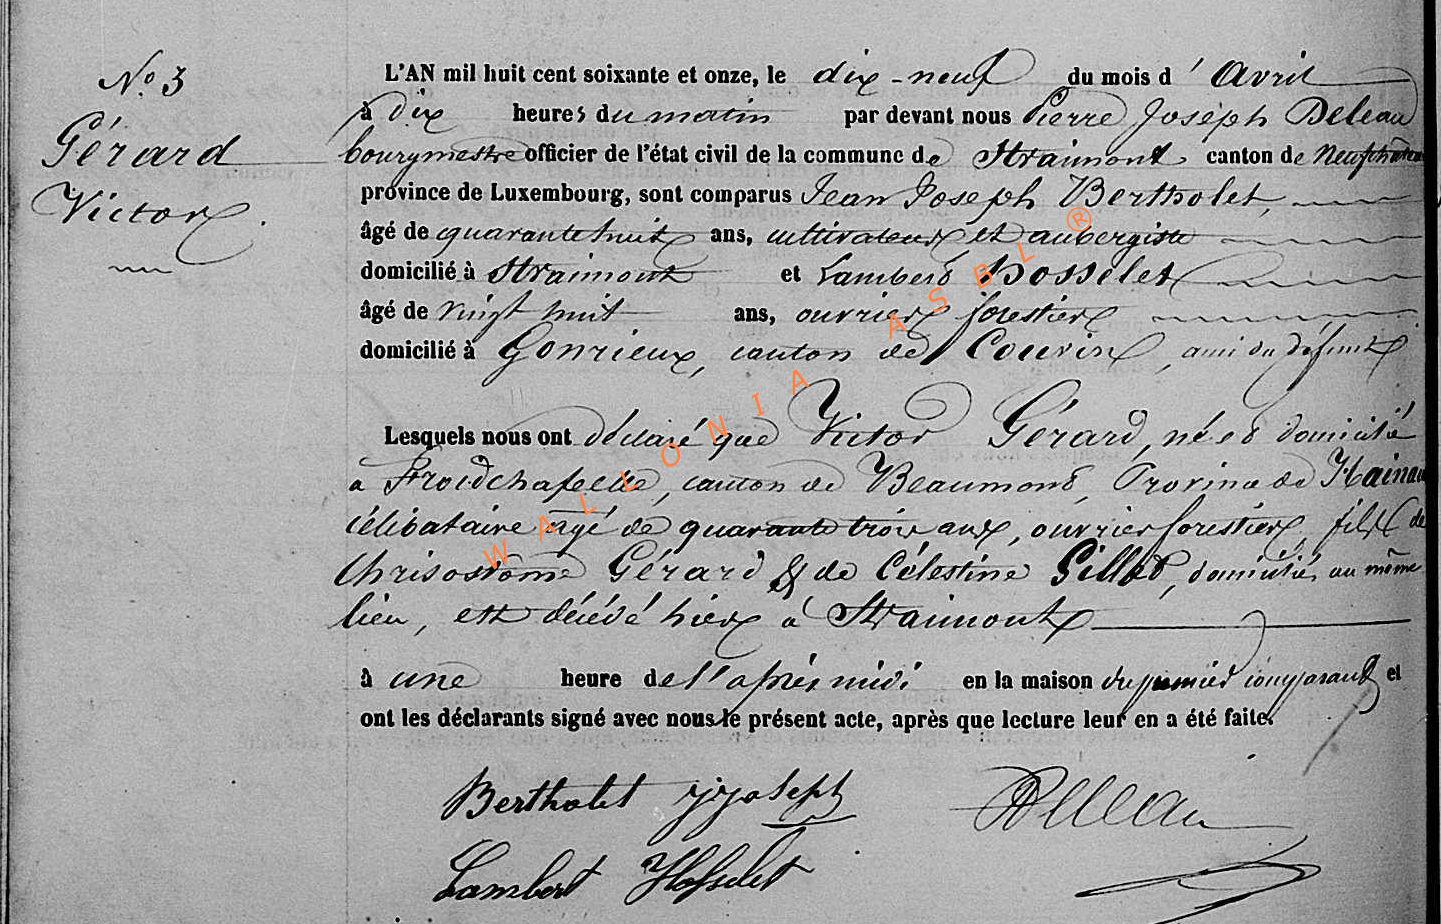 No 3
Gérard
Victor
L'AN mil huit cent soixante et onze, le dix-neuf du mois d'Avril
à dix heures du matin par devant nous Pierre Joseph Deleau
bourgmestre officier de l'état civil de la commune de Straimont canton de Neufchâteau
province de Luxembourg, sont comparus Jean Joseph Bertholet,
âgé de quarante huit ans, cultivateur et aubergiste
domicilié à Straimont et Lambert Hosselet
âgé de vingt huit ans, ouvrier forestier
domicilié à Gonrieux, canton de Couvin, ami du défunt
Lesquels nous ont déclaré que Victor Gérard, né et domicilié
à Froidchapelle, canton de Beaumont, Province de Hainaut
célibataire âgé de quarante trois ans, ouvrier forestier, fils de
Chrisostome Gérard & de Célestine Gillet, domiciliés au même
lieu, est décédé hier à Straimont
à une heure de l'après midi en la maison du premier comparant et
ont les déclarants signé avec nous le présent acte, après que lecture leur en a été faite.
Bertholet jjoseph
Deleau
Lambert Hosselet
WALLONIA ASBL ®